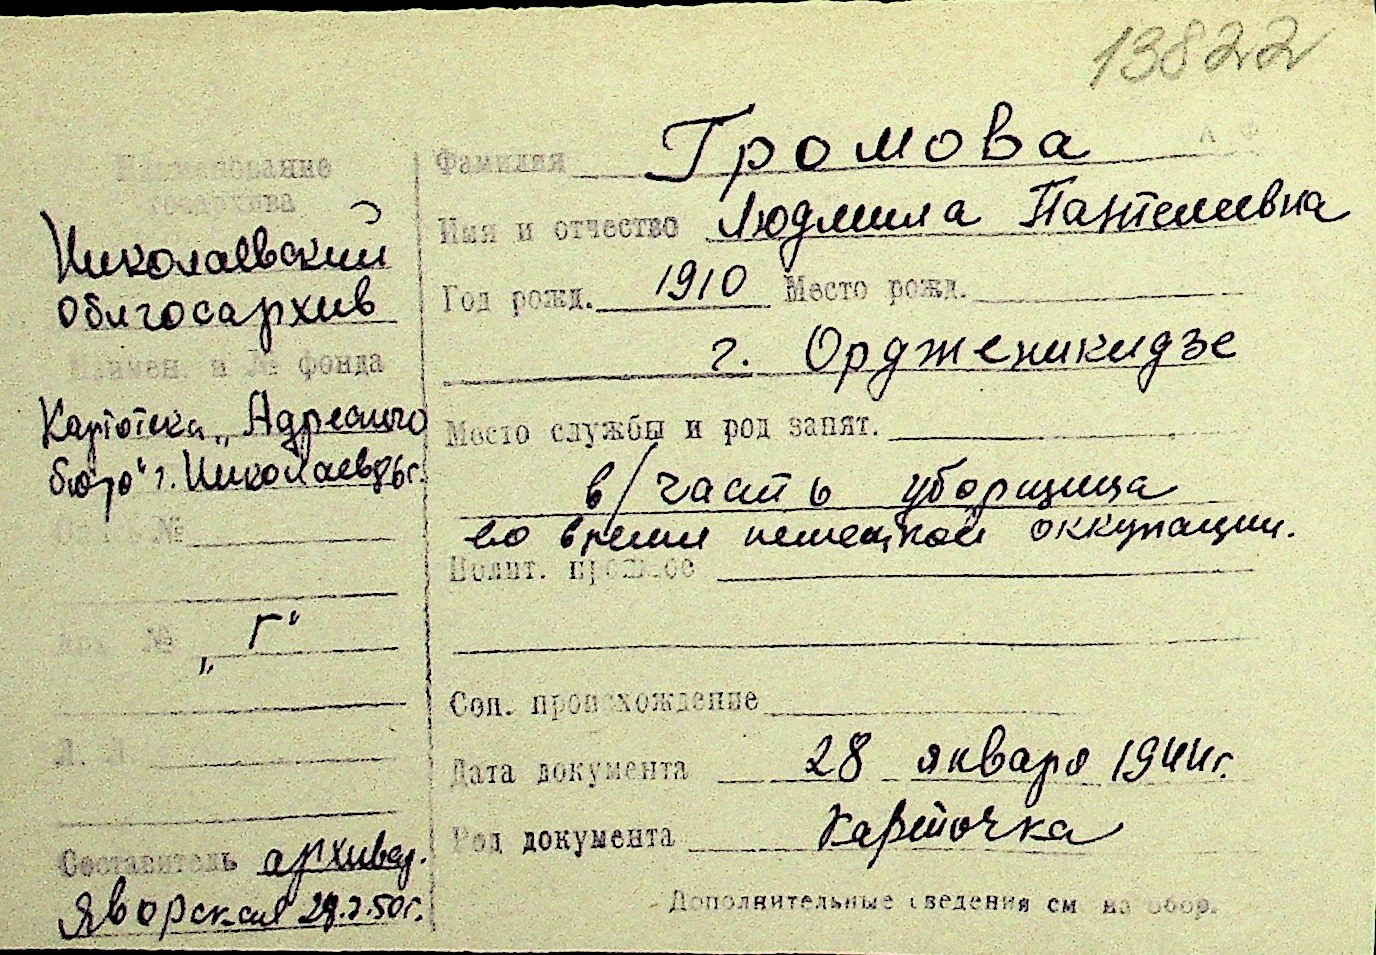 13822
А Ф
Наименование
госархива
Николаевский
облгосархив
Наимен. и № фонда
Картотека „Адресного
бюро“ г. Николаев
Оп. №
„Г“
Л. Л.
Составитель архивар.
Яворская 50г.
Фамилия Громова
Имя и отчество Людмила Пантелеевна
Год рожд. 1910 Место рожд.
г. Ордженикидзе
Место службы и род занят.
в/часть уборщица
во время немецкой оккупации.
Полит. прошлое
Соц. происхождение
Дата документа 28 января 1944г.
Род документа карточка
Дополнительные сведения см. на обор.